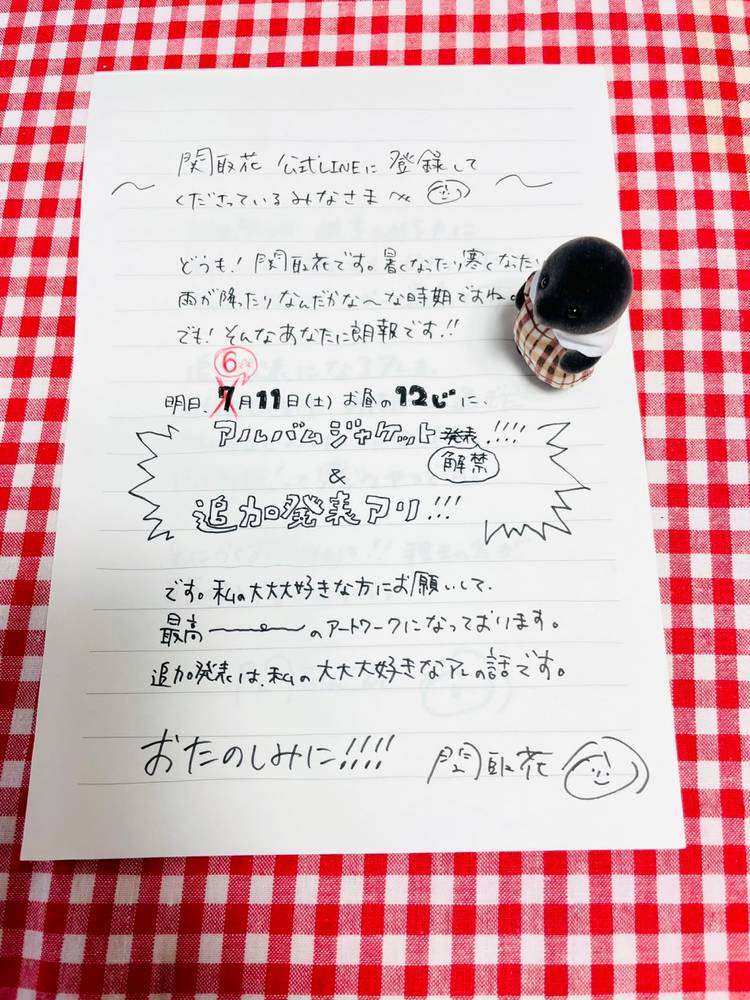 関取花 公式LINEに 登録して
くださっているみなさまへ
どうも！関取花です。暑くなったり寒くなったり
雨が降ったりなんだかな〜な時期ですね。
でも！そんなあなたに朗報です!!
6
明日、7月11日(土) お昼の12じに、
アルバムジャケット発表!!!!
解禁
&
追加発表アリ!!!
です。私の大大大好きな方にお願いして、
最高〜のアートワークになっております。
追加発表は、私の大大大好きなアレの話です。
おたのしみに!!!! 関取花